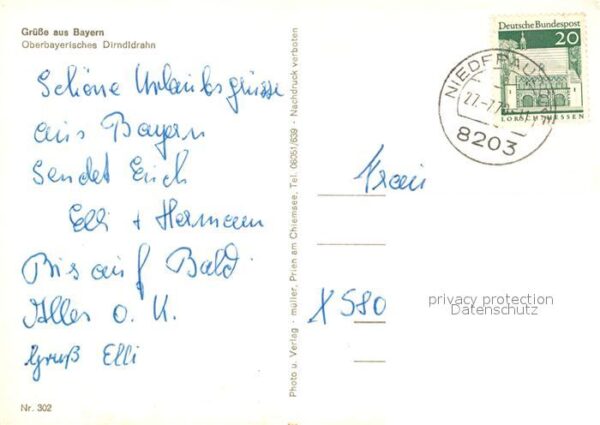 Grüße aus Bayern
Oberbayerisches Dirndldrahn
Schöne Urlaubsgrüsse
aus Bayern
Sendet Euch
Elli + Hermann
Bis auf Bald
Alles o. K.
Gruß Elli
Nr. 302
Photo u. Verlag - müller, Prien am Chiemsee, Tel. 08051/639 - Nachdruck verboten
Deutsche Bundespost
20
LORSCH HESSEN
NIEDERAU
27.-7.7
8203
X 580
privacy protection
Datenschutz